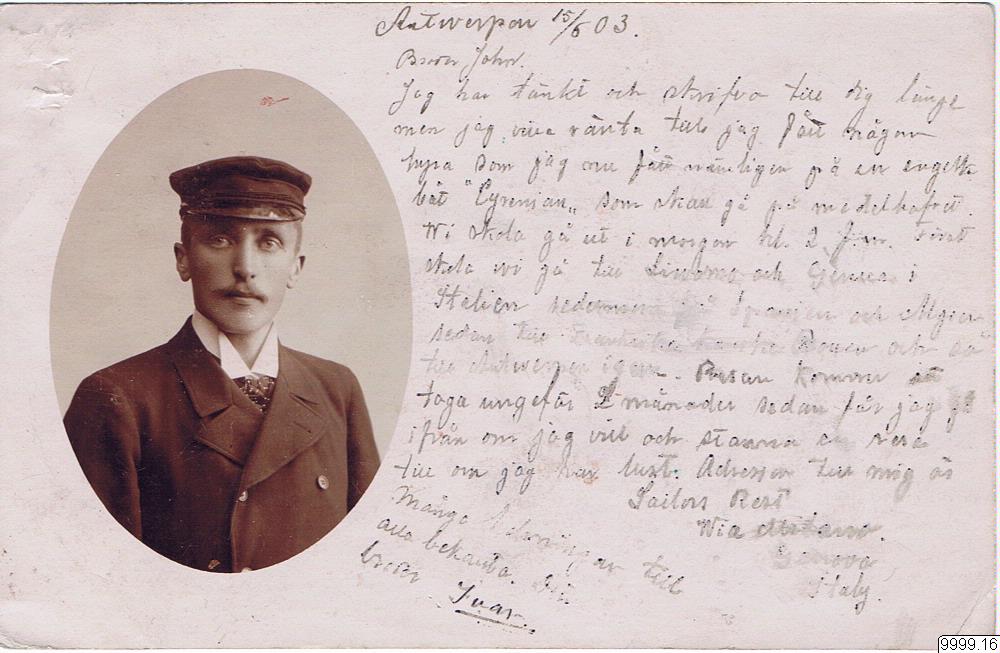 Antwerpen 15/5 03.
Broder John.
Jag har tänkt och skrifva till dig länge
men jag vill vänta tills jag fått någon
hyra som jag nu fått nämligen på en engelsk
båt "Cyrenian" som skall gå på medelhafvet.
Wi skola gå ut i morgon kl. 2 f.m. Först
skola wi gå till Livorno och Genua i
Italien sedermera på Spanien och
sedan till Rouen och så
till Antwerpen igen. Resan kommer att
taga ungefär 2 månader sedan får jag gå
ifrån om jag vill och stanna en resa
till om jag har lust. Adressen till mig är
Sailors Rest
Wia Milano.
Genova,
Italy.
Många hälsningar till
alla bekanta. Din
broder Ivar.
9999.16